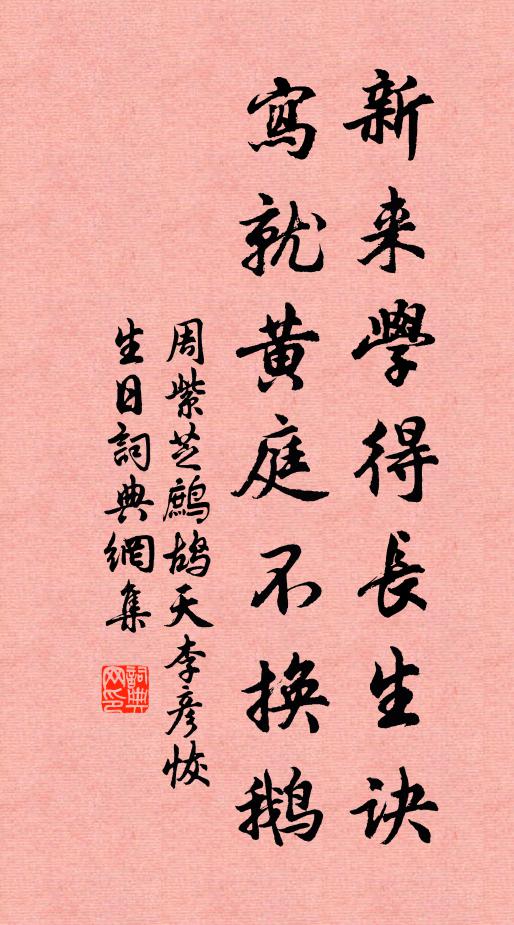 新来學得長生诀
寫就黃庭不換鵝
周紫芝鷓鴣天李彦恢
生日詞典網集
詞典网印